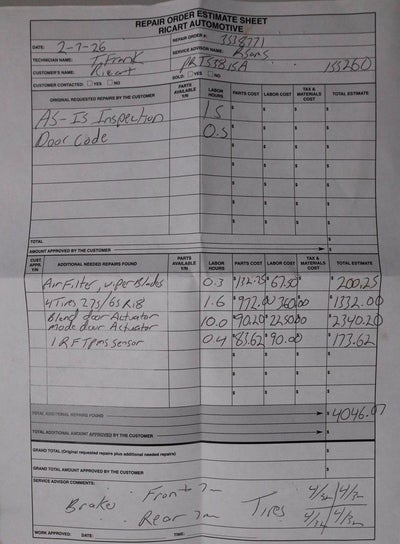 REPAIR ORDER ESTIMATE SHEET
RICART AUTOMOTIVE
DATE: 2-7-26 REPAIR ORDER #: 3538771
TECHNICIAN NAME: T. Frank SERVICE ADVISOR NAME:
CUSTOMER'S NAME: Ricart PRT53815A 155260
CUSTOMER CONTACTED: YES NO SOLD: YES NO
ORIGINAL REQUESTED REPAIRS BY THE CUSTOMER PARTS AVAILABLE Y/N LABOR HOURS PARTS COST LABOR COST TAX & MATERIALS COST TOTAL ESTIMATE
AS-IS Inspection 1.5 $ $ $ $
Door Code 0.5 $ $ $ $
TOTAL $
AMOUNT APPROVED BY THE CUSTOMER $
CUST. APPR. Y/N ADDITIONAL NEEDED REPAIRS FOUND PARTS AVAILABLE Y/N LABOR HOURS PARTS COST LABOR COST TAX & MATERIALS COST TOTAL ESTIMATE
Air Filter, wiper Blades 0.3 $132.75 $67.50 $ $200.25
4 Tires 275/65R18 1.6 $972.00 $360.00 $ $1332.00
Blend door Actuator
Mode door Actuator 10.0 $90.20 $2250.00 $ $2340.20
1 RF TPMS Sensor 0.4 $83.62 $90.00 $ $173.62
TOTAL ADDITIONAL REPAIRS FOUND $4046.07
TOTAL ADDITIONAL AMOUNT APPROVED BY THE CUSTOMER $
GRAND TOTAL (Original requested repairs plus additional needed repairs) $
GRAND TOTAL AMOUNT APPROVED BY THE CUSTOMER $
SERVICE ADVISOR COMMENTS:
Brakes Front 7m Tires 4/32 4/32
Rear 7m 4/32 4/32
WORK APPROVED: DATE: TIME: